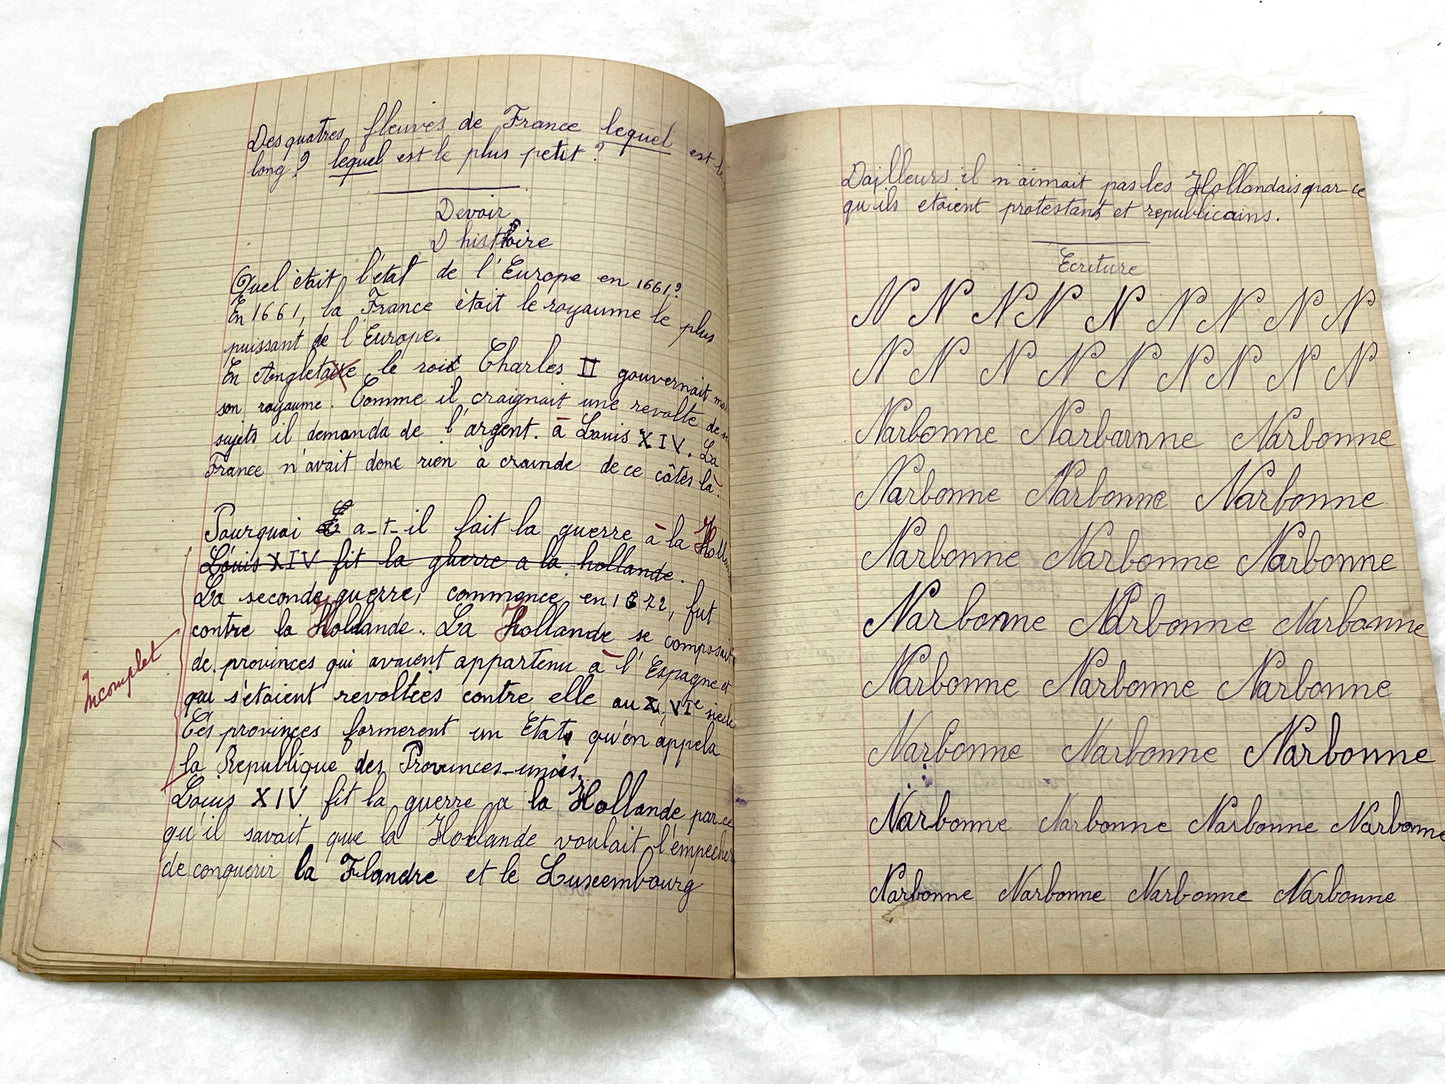 Des quatres fleuves de France lequel est le
long? lequel est le plus petit?
Devoir
D histoire
Quel était l'état de l'Europe en 1661?
En 1661, la France était le royaume le plus
puissant de l Europe.
En Angletaire le roi Charles II gouvernait
son royaume. Comme il craignait une revolte de
sujets il demanda de l'argent. à Louis XIV. La
France n'avait donc rien a craindre de ce côtés là.
Pourquoi a-t-il fait la guerre à la Hollande
Louis XIV fit la guerre a la hollande.
La seconde guerre, commence, en 1672, fut
contre la Hollande. La Hollande se composait
de provinces qui avaient appartenu à l'Espagne et
qui s'étaient revoltées contre elle au XVIe siècle
Ces provinces formerent un Etat qu'on appela
la Republique des Provinces-unies.
Incomplet
Louis XIV fit la guerre a la Hollande parce
qu'il savait que la Hollande voulait l'empêcher
de conquerir la Flandre et le Luxembourg
Dailleurs il n'aimait pas les Hollandais par-ce
qu'ils etaient protestants et republicains.
Ecriture
N N N N N N N N N
N N N N N N N N N
Narbonne Narbonne Narbonne
Narbonne Narbonne Narbonne
Narbonne Narbonne Narbonne
Narbonne Narbonne Narbonne
Narbonne Narbonne Narbonne
Narbonne Narbonne Narbonne
Narbonne Narbonne Narbonne Narbonne
Narbonne Narbonne Narbonne Narbonne